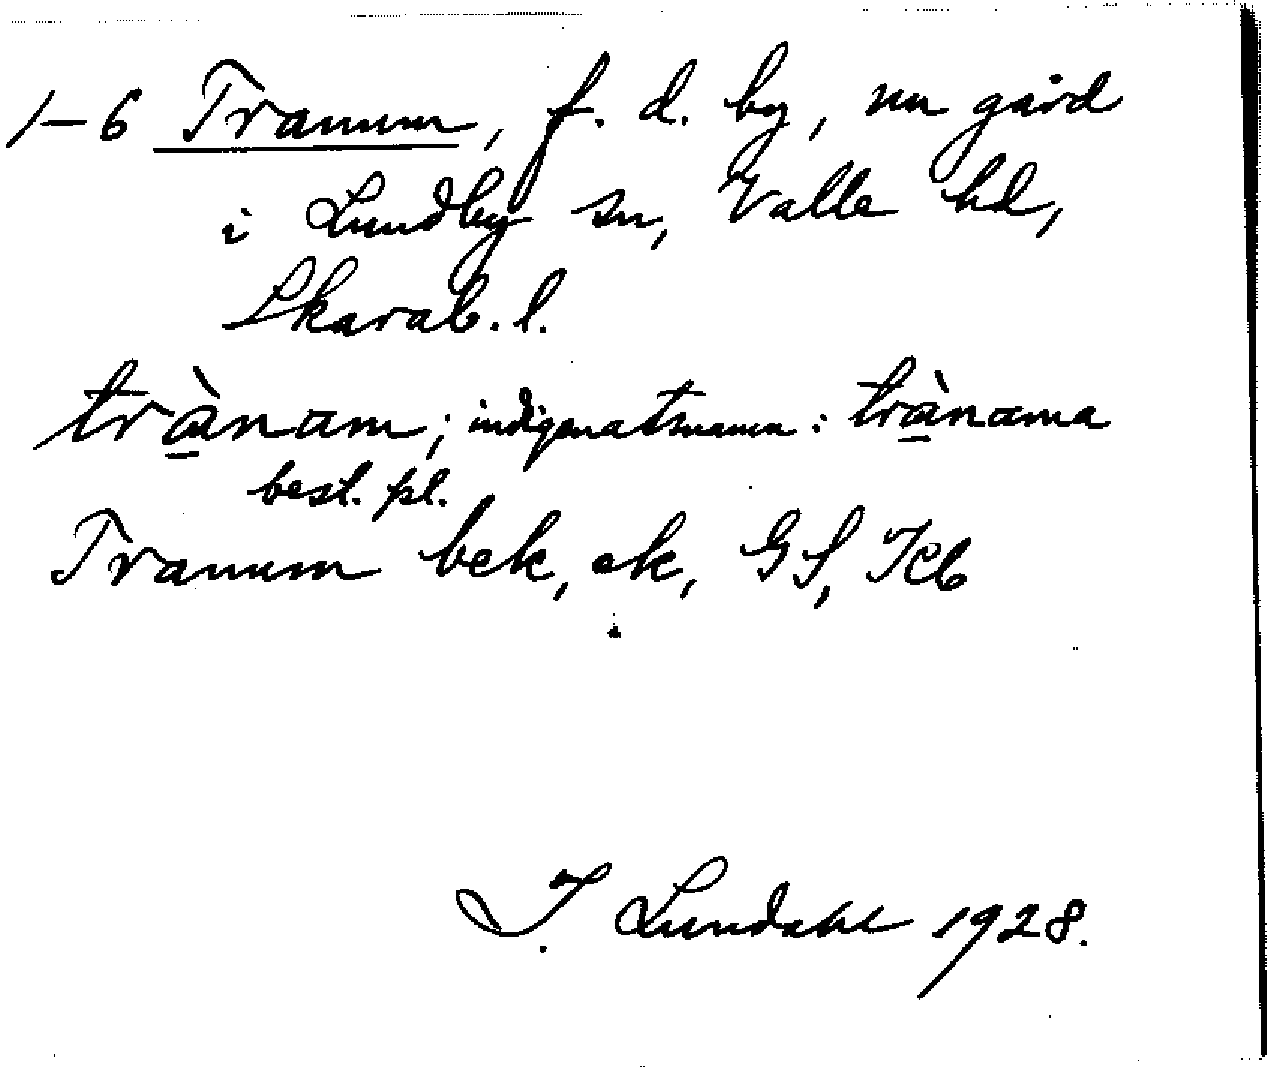 1–6 Tranum, f. d. by, nu gård
i Lundby sn, Valle hd,
Skarab. l.
trànam; indigenatsnamn: trànama
best. pl.
Tranum bek, ek, GS, Kb
I. Lundahl 1928.